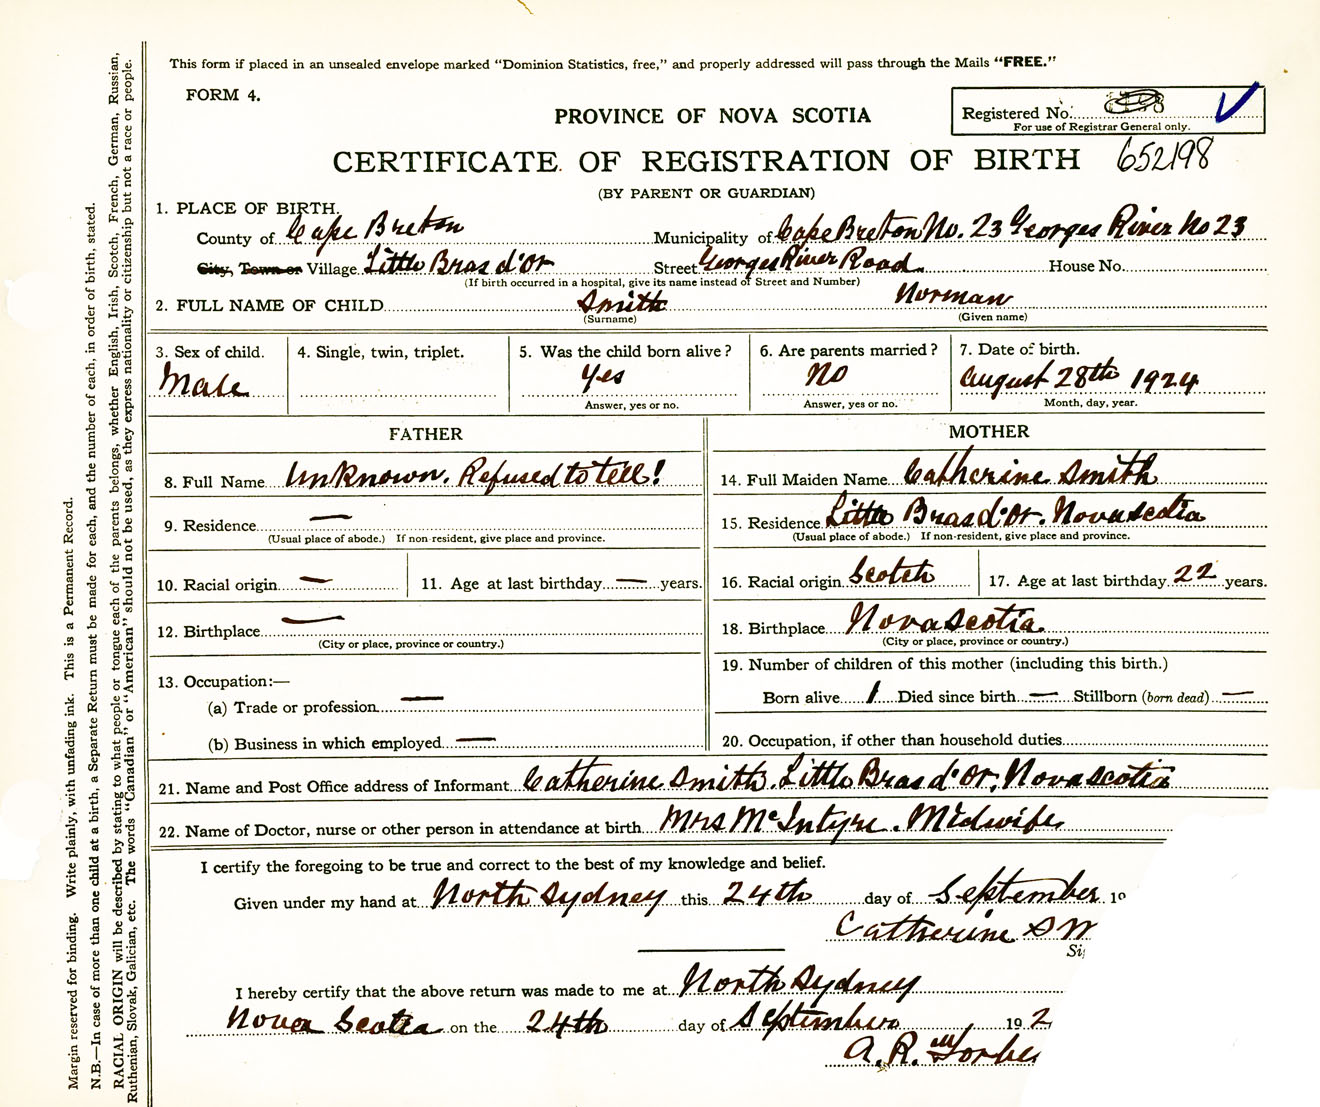 This form if placed in an unsealed envelope marked “Dominion Statistics, free,” and properly addressed will pass through the Mails “FREE.”
FORM 4.
PROVINCE OF NOVA SCOTIA
Registered No.
For use of Registrar General only.
CERTIFICATE OF REGISTRATION OF BIRTH 652198
(BY PARENT OR GUARDIAN)
1. PLACE OF BIRTH.
County of Cape Breton Municipality of Cape Breton No. 23 Georges River No 23
City, Town or Village Little Bras d'Or Street Georges River Road. House No.
(If birth occurred in a hospital, give its name instead of Street and Number)
2. FULL NAME OF CHILD Smith Norman
(Surname) (Given name)
3. Sex of child. 4. Single, twin, triplet. 5. Was the child born alive? 6. Are parents married? 7. Date of birth.
Male Yes No August 28th 1924
Answer, yes or no. Answer, yes or no. Month, day, year.
FATHER MOTHER
8. Full Name Unknown. Refused to tell! 14. Full Maiden Name Catherine Smith
9. Residence — 15. Residence Little Bras d'Or. Nova Scotia
(Usual place of abode.) If non-resident, give place and province. (Usual place of abode.) If non-resident, give place and province.
10. Racial origin — 11. Age at last birthday — years. 16. Racial origin Scotch 17. Age at last birthday 22 years.
12. Birthplace — 18. Birthplace Nova Scotia
(City or place, province or country.) (City or place, province or country.)
13. Occupation:— 19. Number of children of this mother (including this birth.)
(a) Trade or profession — Born alive 1 Died since birth — Stillborn (born dead) —
(b) Business in which employed — 20. Occupation, if other than household duties
21. Name and Post Office address of Informant Catherine Smith. Little Bras d'Or, Nova Scotia
22. Name of Doctor, nurse or other person in attendance at birth Mrs McIntyre. Midwife
I certify the foregoing to be true and correct to the best of my knowledge and belief.
Given under my hand at North Sydney this 24th day of September 19
Catherine Sm
Si
I hereby certify that the above return was made to me at North Sydney
Nova Scotia on the 24th day of September 192
A. R. Forbe
Margin reserved for binding. Write plainly, with unfading ink. This is a Permanent Record.
N.B.—In case of more than one child at a birth, a Separate Return must be made for each, and the number of each, in order of birth, stated.
RACIAL ORIGIN will be described by stating to what people or tongue each of the parents belongs, whether English, Irish, Scotch, French, German, Russian,
Ruthenian, Slovak, Galician, etc. The words “Canadian” or “American” should not be used, as they express nationality or citizenship but not a race or people.